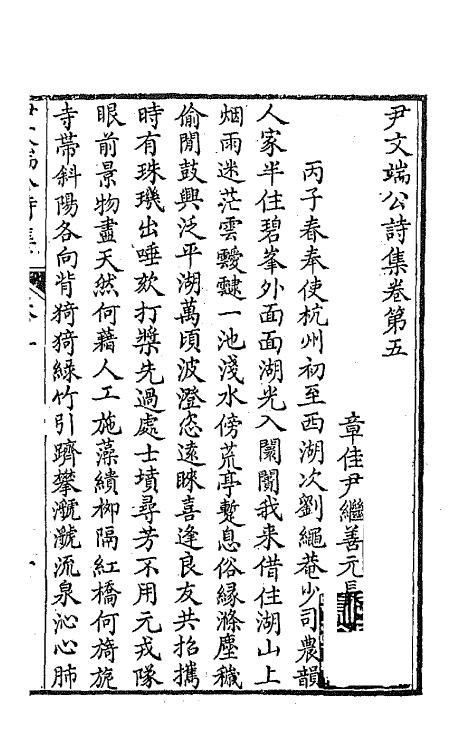 尹文端公詩集卷第五
章佳尹繼善元長
丙子春奉使杭州初至西湖次劉繩菴少司農韻
人家半住碧峯外面面湖光入闤闠我来借住湖山上
烟雨迷茫雲靉靆一池淺水傍荒亭蹔息俗緣滌塵穢
偷閒鼓興泛平湖萬頃波澄恣遠睐喜逢良友共招攜
時有珠璣出唾欬打槳先過處士墳尋芳不用元戎隊
眼前景物盡天然何藉人工施藻繢栁隔紅橋何旖旎
寺帶斜陽各向背猗猗緑竹引躋攀㶁㶁流泉沁心肺
尹文端公詩集